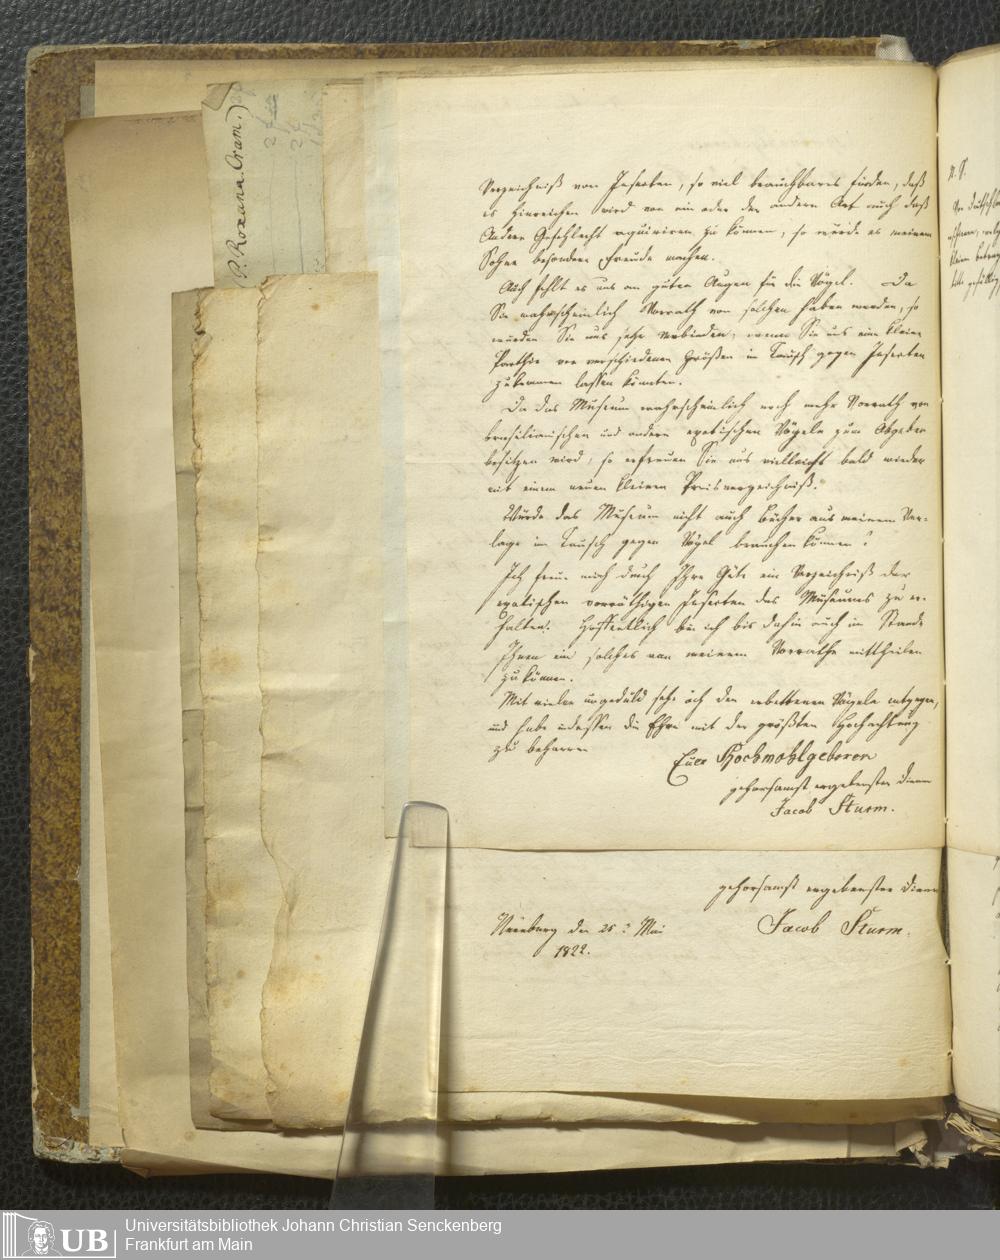 P. Roxana. Cram.)
Verzeichniß von Insecten, so viel brauchbares finden, daß
es hinreichen wird von ein oder der andern Art auch daß
Andere Geschlecht acquiriren zu können, so würde es meinem
Sohne besondere Freude machen.
Auch fehlt es uns an guten Augen für die Vögel. Da
Sie wahrscheinlich Vorrath von solchen haben werden, so
würden Sie uns sehr verbinden, wenn Sie uns eine kleine
Parthie von verschiedenen Größen im Tausch gegen Insecten
zukommen lassen könnten.
Da das Museum wahrscheinlich noch mehr Vorrath von
brasilianischen und andern exotischen Vögeln zum Abgeben
besitzen wird, so erfreuen Sie uns vielleicht bald wieder
mit einem neuen kleinen Preisverzeichniß.
Würde das Museum nicht auch Bücher aus meinem Ver-
lage im Tausch gegen Vögel brauchen können?
Ich freue mich durch Ihre Güte ein Verzeichniß der
exotischen vorräthigen Insecten des Museums zu er-
halten. Hoffentlich bin ich bis dahin auch im Stande
Ihnen ein solches von meinem Vorrathe mittheilen
zu können.
Mit vieler ungeduld sehe ich den erbettenen Vögeln entgegen,
und habe indessen die Ehre mit der größten Hochachtung
zu beharren
Euer Hochwohlgeboren
gehorsamst ergebenster Diener
Jacob Sturm.
gehorsamst ergebenster Diener
Jacob Sturm.
Nürnberg den 25 Mai
1822.
N. S.
Universitätsbibliothek Johann Christian Senckenberg
Frankfurt am Main
UB